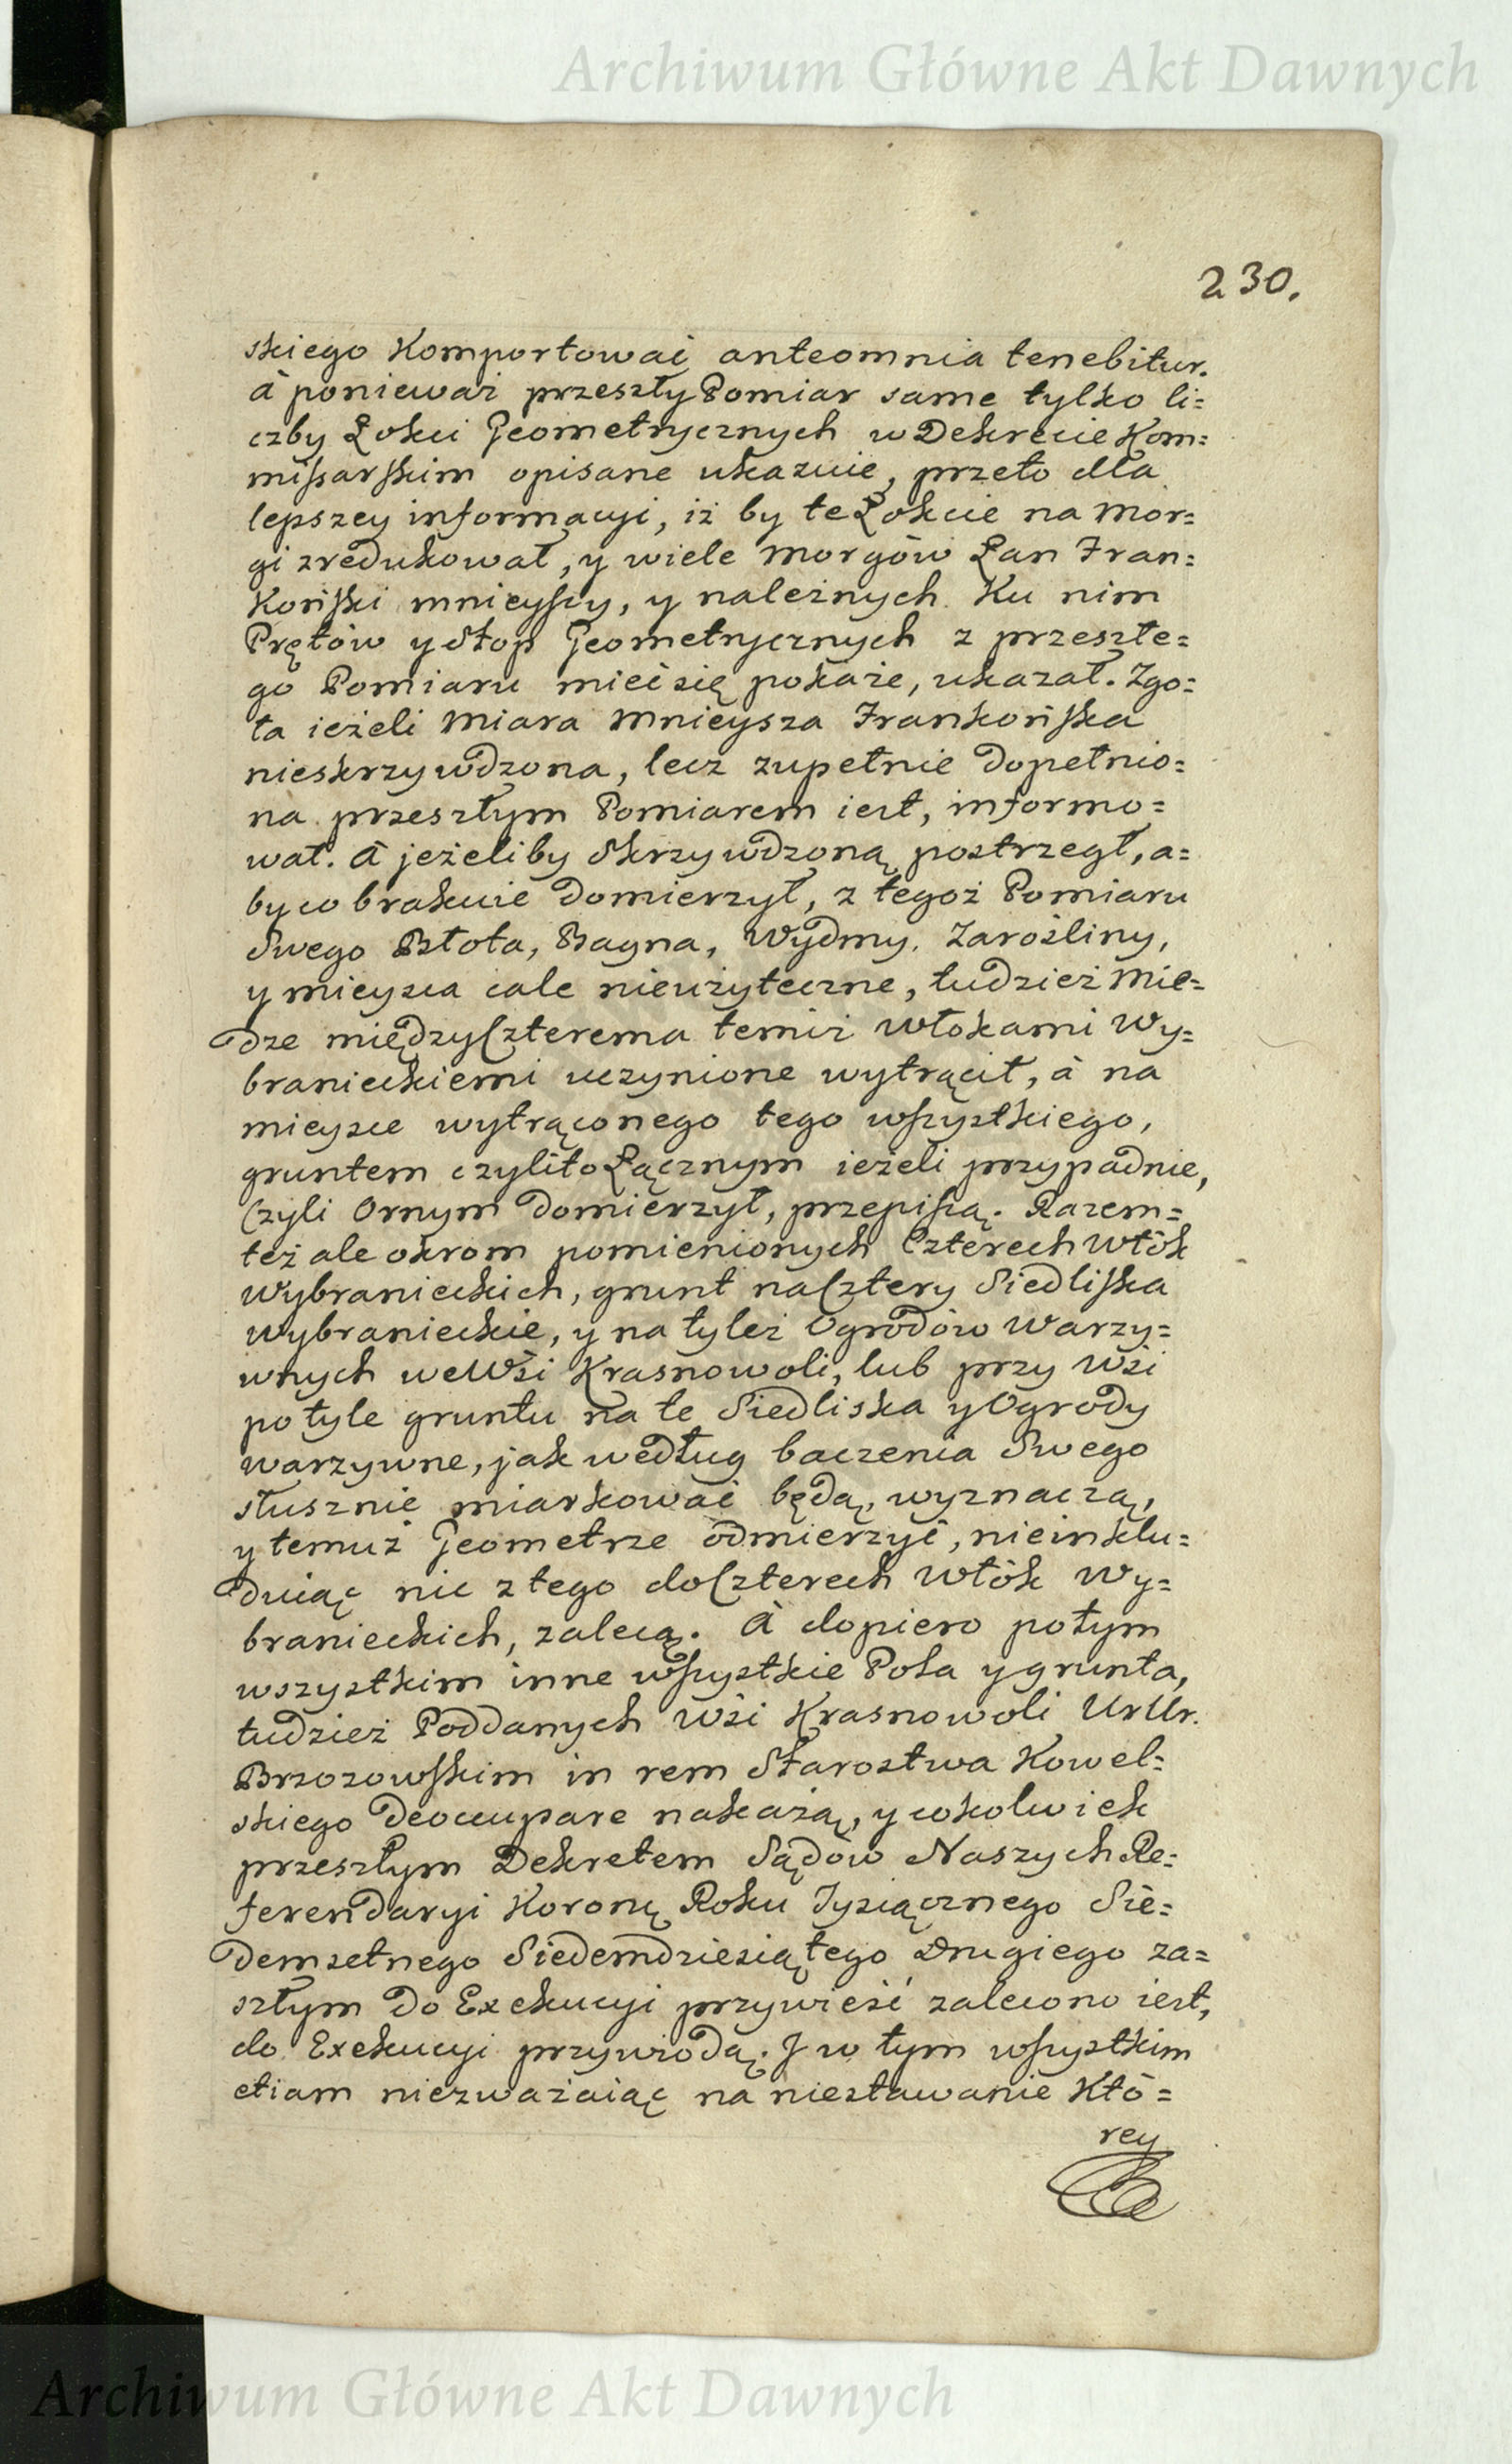 Archiwum Główne Akt Dawnych
230.
skiego Komportować anteomnia tenebitur.
à ponieważ przeszły Pomiar same tylko li=
czby Łokci Geometrycznych w Dekrecie Kom=
mißarskim opisane ukazuie, przeto dla
lepszey informacyi, iż by te Łokcie na Mor=
gi zredukował, y wiele Morgów Łan Fran=
Koński mnieyszy, y należnych Ku nim
Prętów y Stop Geometrycznych z przeszłe=
go Pomiaru mieć się pokaże, ukazał. Zgo=
ła ieżeli Miara Mnieysza Frankońska
nieskrzywdzona, lecz zupełnie dopełnio=
na przeszłym Pomiarem iest, informo=
wał. à jeżeliby Skrzywdzoną postrzegł, a=
by co brakuie domierzył, z tegoż Pomiaru
Swego Błota, Bagna, Wydmy, Zarośliny,
y mieysca cale nieużyteczne, tudzież Mie=
dze między Czterema temiż Włokami Wy=
branieckiemi uczynione wytrącił, à na
mieysce wytrąconego tego wszystkiego,
gruntem czyli to Łącznym ieżeli przypadnie,
Czyli Ornym domierzył, przepiszą. Razem=
też ale okrom pomienionych Czterech Włók
Wybranieckich, grunt na Cztery Siedliska
Wybranieckie, y na tyleż Ogrodów Warzy=
wnych we Wsi Krasnowoli, lub przy Wsi
po tyle gruntu na te Siedliska y Ogrody
warzywne, jak według baczenia Swego
słusznie miarkować będą, wyznaczą,
y temuż Geometrze odmierzyć, nie inklu=
duiąc nic z tego do Czterech Włók Wy=
branieckich, zalecą. à dopiero potym
wszystkim inne wszystkie Pola y grunta,
tudzież Poddanych Wsi Krasnowoli Ur Ur.
Brzozowskim in rem Starostwa Kowel=
skiego deoccupare nakażą, y cokolwiek
przeszłym Dekretem Sądów Naszych Re=
ferendaryi Koronę Roku Tysiącznego Sie=
demsetnego Siedemdziesiątego Drugiego za=
szłym do Exekucyi przywieść zalecono iest,
do Exekucyi przywiodą. J w tym wszystkim
etiam niezważaiąc na niestawanie Któ=
rey
Archiwum Główne Akt Dawnych